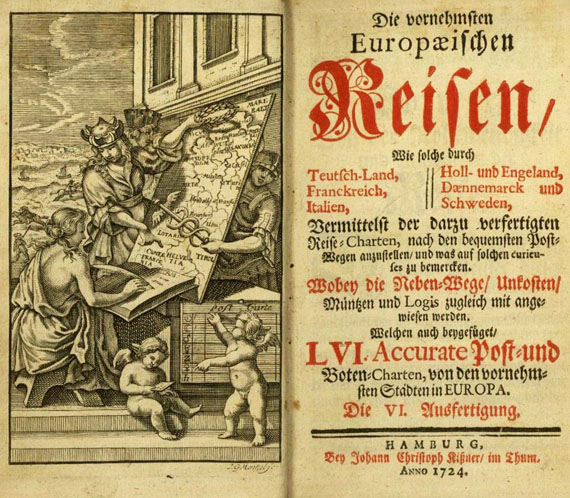 MARE
BALT
TIROL
HELVE
TIA
Post Carte
Die vornehmsten
Europæischen
Reisen/
Wie solche durch
Teutsch-Land,
Franckreich,
Italien,
Holl- und Engeland,
Dænnemarck und
Schweden,
Vermittelst der darzu verfertigten
Reise-Charten, nach den bequemsten Post-
Wegen anzustellen/ und was auf solchen curieu-
ses zu bemercken.
Wobey die Neben-Wege/ Unkosten/
Müntzen und Logis zugleich mit ange-
wiesen werden.
Welchen auch beygefüget/
LVI. Accurate Post-und
Boten-Charten, von den vornehm-
sten Städten in EUROPA.
Die VI. Ausfertigung.
HAMBURG,
Bey Johann Christoph Kißner/ im Thum.
ANNO 1724.